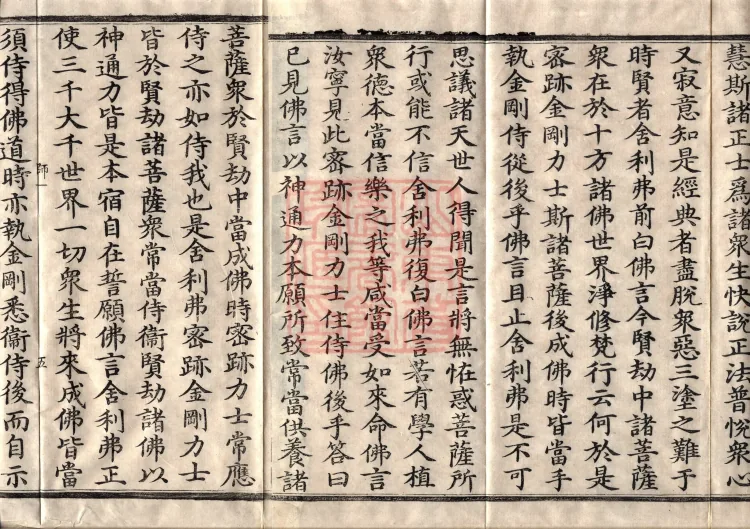 慧斯諸正士爲諸衆生快說正法普悅衆心
又寂意知是經典者盡脫衆惡三塗之難于
時賢者舍利弗前白佛言今賢劫中諸菩薩
衆在於十方諸佛世界淨修梵行云何於是
密跡金剛力士斯諸菩薩後成佛時皆當手
執金剛侍從後乎佛言且止舍利弗是不可
思議諸天世人得聞是言將無恠惑菩薩所
行或能不信舍利弗復白佛言若有學人植
衆德本當信樂之我等咸當受如來命佛言
汝寧見此密跡金剛力士住侍佛後乎答曰
已見佛言以神通力本願所致常當供養諸
菩薩衆於賢劫中當成佛時密跡力士常應
侍之亦如侍我也是舍利弗密跡金剛力士
皆於賢劫諸菩薩衆常當侍衞賢劫諸佛以
神通力皆是本宿自在誓願佛言舍利弗正
使三千大千世界一切衆生將來成佛皆當
師一 五
須侍得佛道時亦執金剛悉衞侍後而自示